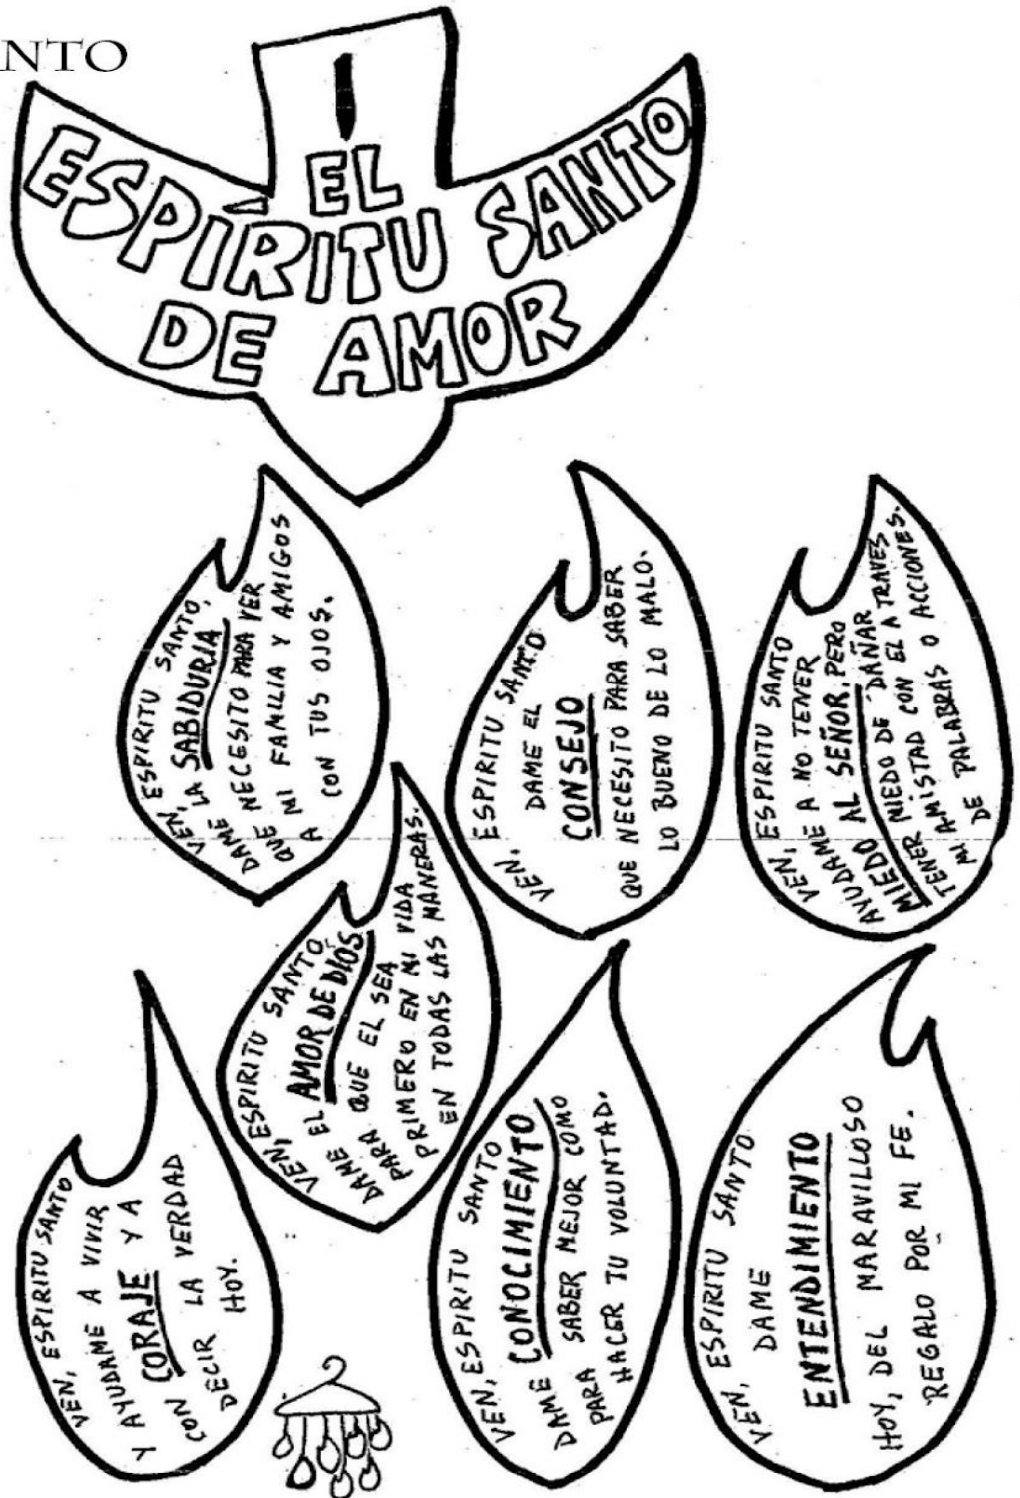 NTO
EL
ESPÍRITU SANTO
DE AMOR
VEN, ESPIRITU SANTO,
DAME LA SABIDURIA,
QUE NECESITO PARA VER
A MI FAMILIA Y AMIGOS
CON TUS OJOS.
VEN, ESPIRITU SANTO
DAME EL
CONSEJO
QUE NECESITO PARA SABER
LO BUENO DE LO MALO.
VEN, ESPIRITU SANTO
AYUDAME A NO TENER
MIEDO AL SEÑOR, PERO
TENER MIEDO DE DAÑAR
MI AMISTAD CON EL A TRAVES
DE PALABRAS O ACCIONES.
VEN, ESPIRITU SANTO
DAME EL AMOR DE DIOS
PARA QUE EL SEA
PRIMERO EN MI VIDA
EN TODAS LAS MANERAS.
VEN, ESPIRITU SANTO
Y AYUDAME A VIVIR
CON CORAJE Y A
DECIR LA VERDAD
HOY.
VEN, ESPIRITU SANTO
DAME CONOCIMIENTO
PARA SABER MEJOR COMO
HACER TU VOLUNTAD.
VEN, ESPIRITU SANTO
DAME
ENTENDIMIENTO
HOY, DEL MARAVILLOSO
REGALO POR MI FE.